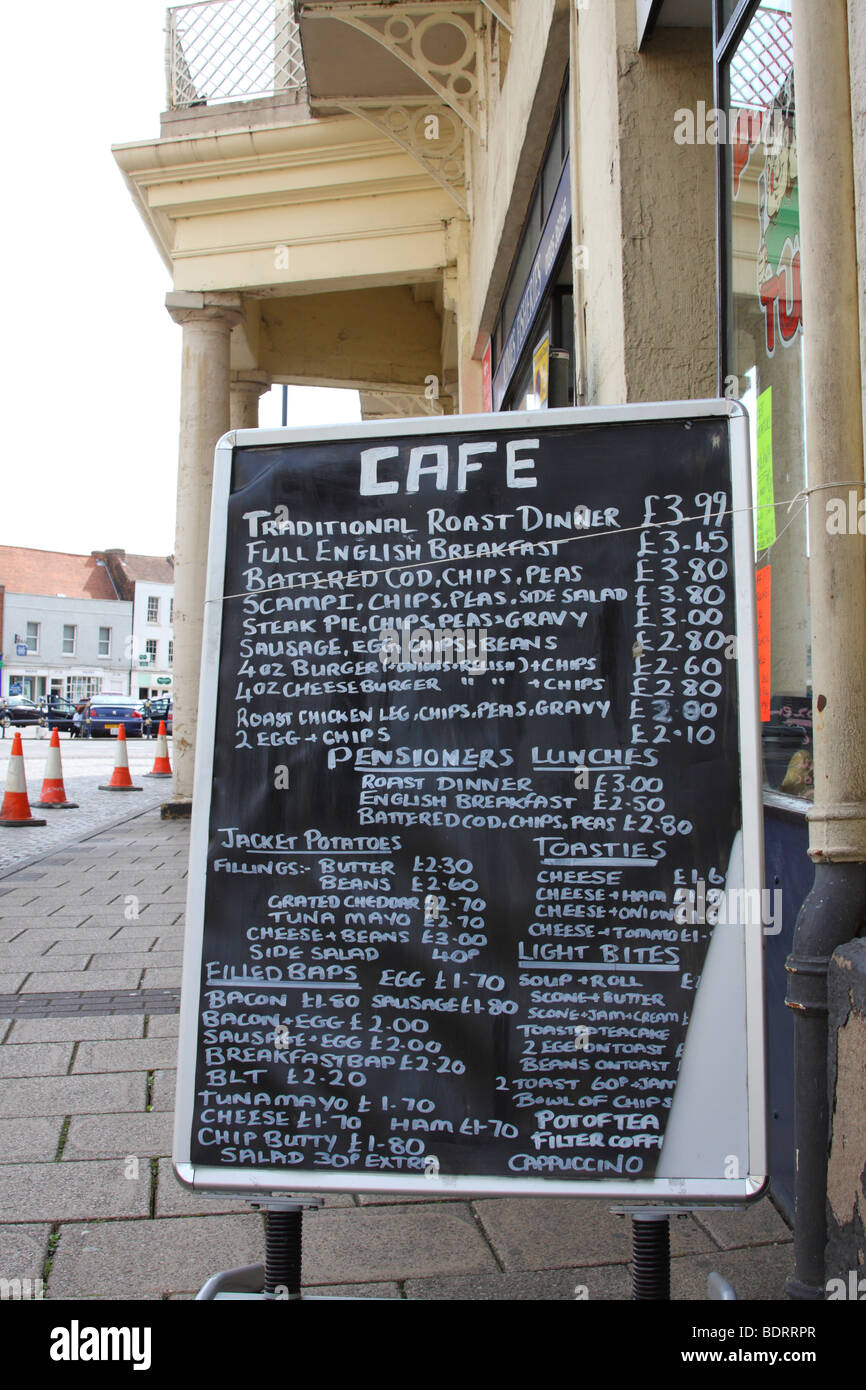 CAFE
TRADITIONAL ROAST DINNER £3.99
FULL ENGLISH BREAKFAST £3.45
BATTERED COD, CHIPS, PEAS £3.80
SCAMPI, CHIPS, PEAS, SIDE SALAD £3.80
STEAK PIE, CHIPS, PEAS + GRAVY £3.00
SAUSAGE, EGG, CHIPS + BEANS £2.80
4OZ BURGER (ONIONS + RELISH) + CHIPS £2.60
4OZ CHEESEBURGER " " + CHIPS £2.80
ROAST CHICKEN LEG, CHIPS, PEAS, GRAVY £2.80
2 EGG + CHIPS £2.10
PENSIONERS LUNCHES
ROAST DINNER £3.00
ENGLISH BREAKFAST £2.50
BATTERED COD, CHIPS, PEAS £2.80
JACKET POTATOES
FILLINGS:- BUTTER £2.30
BEANS £2.60
GRATED CHEDDAR £2.70
TUNA MAYO £2.70
CHEESE + BEANS £3.00
SIDE SALAD 40P
FILLED BAPS EGG £1.70
BACON £1.80 SAUSAGE £1.80
BACON + EGG £2.00
SAUSAGE + EGG £2.00
BREAKFAST BAP £2.20
BLT £2.20
TUNA MAYO £1.70
CHEESE £1.70 HAM £1.70
CHIP BUTTY £1.80
SALAD 30P EXTRA
TOASTIES
CHEESE £1.6
CHEESE + HAM £1.8
CHEESE + ONION
CHEESE + TOMATO £1.
LIGHT BITES
SOUP + ROLL
SCONE + BUTTER
SCONE + JAM + CREAM
TOASTED TEACAKE
2 EGG ON TOAST
BEANS ON TOAST
2 TOAST 60P + JAM
BOWL OF CHIPS
POT OF TEA
FILTER COFF
CAPPUCCINO
alamy
Image ID: BDRRPR
www.alamy.com